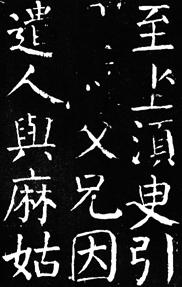 至上須臾引
父兄因
遣人與麻姑